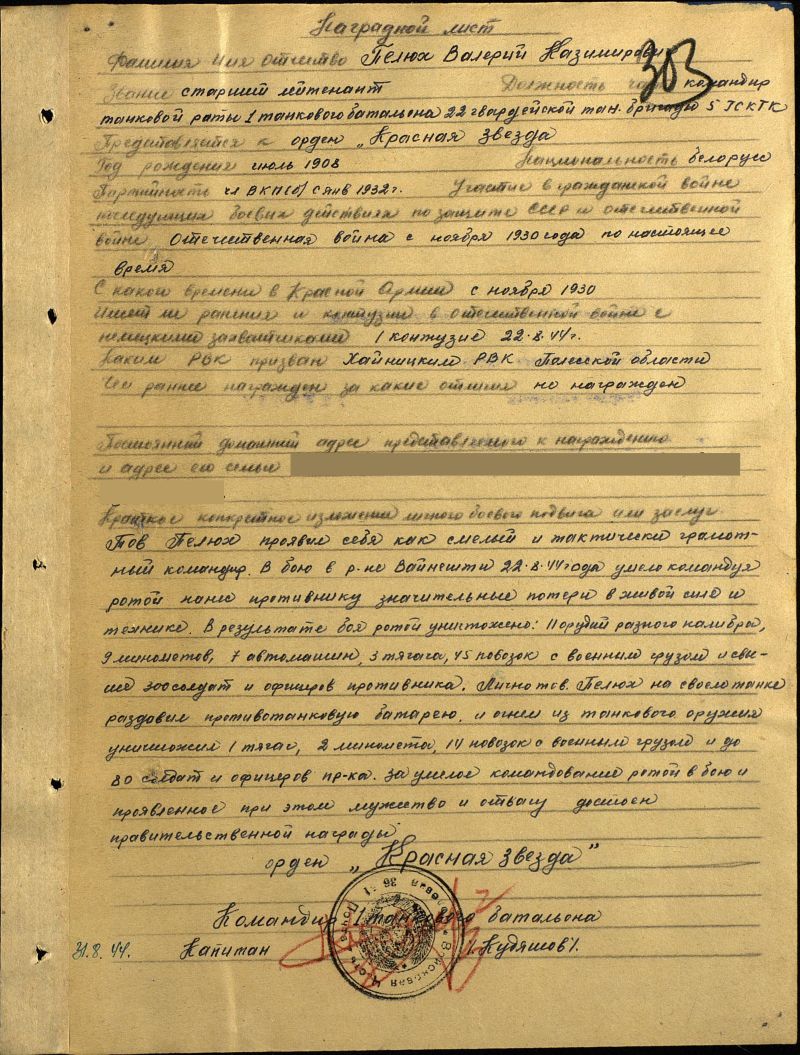 Наградной лист
303
Фамилия Имя Отчество Пелюх Валерий Казимирович
Звание старший лейтенант Должность часть командир
танковой роты 1 танкового батальона 22 гвардейской тан. бригады 5 ГСКТК
Представляется к орден „Красная Звезда
Год рождения июль 1908 Национальность белорус
Партийность чл ВКП(б) с янв 1932 г. Участие в гражданской войне
последующих боевых действиях по защите СССР и отечественной
войне Отечественная война с ноября 1930 года по настоящее
время
С какого времени в Красной Армии с ноября 1930
Имеет ли ранения и контузии в отечественной войне с
немецкими захватчиками 1 контузия 22.8.44 г.
Каким РВК призван Хайницким РВК Полесской области
Чем раннее награжден за какие отличия не награжден
Постоянный домашний адрес представляемого к награждению
и адрес его семьи
Краткое конкретное изложение личного боевого подвига или заслуг
Тов Пелюх проявил себя как смелый и тактически грамот-
ный командир. В бою в р-не Вайнешти 22.8.44 года умело командуя
ротой нанес противнику значительные потери в живой силе и
технике. В результате боя ротой уничтожено: 11 орудий разного калибра,
9 минометов, 7 автомашин, 3 тягача, 45 повозок с военным грузом и свы-
ше 300 солдат и офицеров противника. Лично тов. Пелюх на своем танке
раздавил противотанковую батарею, и огнем из танкового оружия
уничтожил 1 тягач, 2 миномета, 14 повозок с военным грузом и до
80 солдат и офицеров пр-ка. За умелое командование ротой в бою и
проявленное при этом мужество и отвагу достоен
правительственной награды
орден „Красная звезда"
Командир 1 танкового батальона
31.8.44. Капитан /Кудяшов/.
Войсковая часть Полевая почта 36